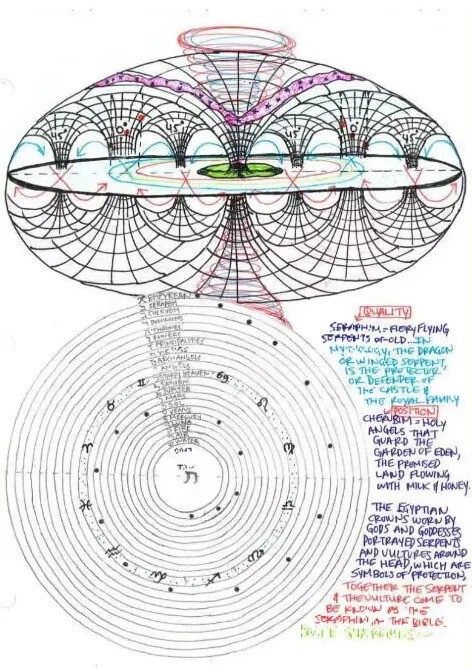 45°
0°
45°
0°
45°
EMPYREAN
SERAPHIM
CHERUBIM
DOMINIONS
THRONES
POWERS
PRINCIPALITIES
VIRTUES
ARCHANGELS
ANGELS
HEAVEN
SATURN
MARS
SOL
VENUS
MERCURY
LUNA
FIRE
WATER
♊
♋
♌
♉
♈
♓
QUALITY
SERAPHIM = FIERY FLYING
SERPENTS OF OLD. IN
MYTHOLOGY, THE DRAGON
OR WINGED SERPENT
IS THE PROTECTOR
OR DEFENDER OF
THE CASTLE &
THE ROYAL FAMILY
POSITION
CHERUBIM = HOLY
ANGELS THAT
GUARD THE
GARDEN OF EDEN,
THE PROMISED
LAND FLOWING
WITH MILK & HONEY.
THE EGYPTIAN
CROWNS WORN BY
GODS AND GODDESSES
PORTRAYED SERPENTS
AND VULTURES AROUND
THE HEAD, WHICH ARE
SYMBOLS OF PROTECTION,
TOGETHER THE SERPENT
& THE VULTURE COME TO
BE KNOWN AS THE
SERAPHIM, IN THE BIBLE.